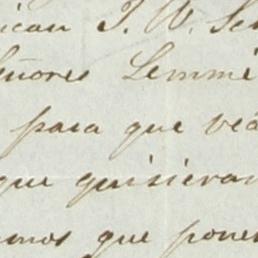 ican T. W. Se
eñores Lemmé
para que vea
que quisieran
mos que pone